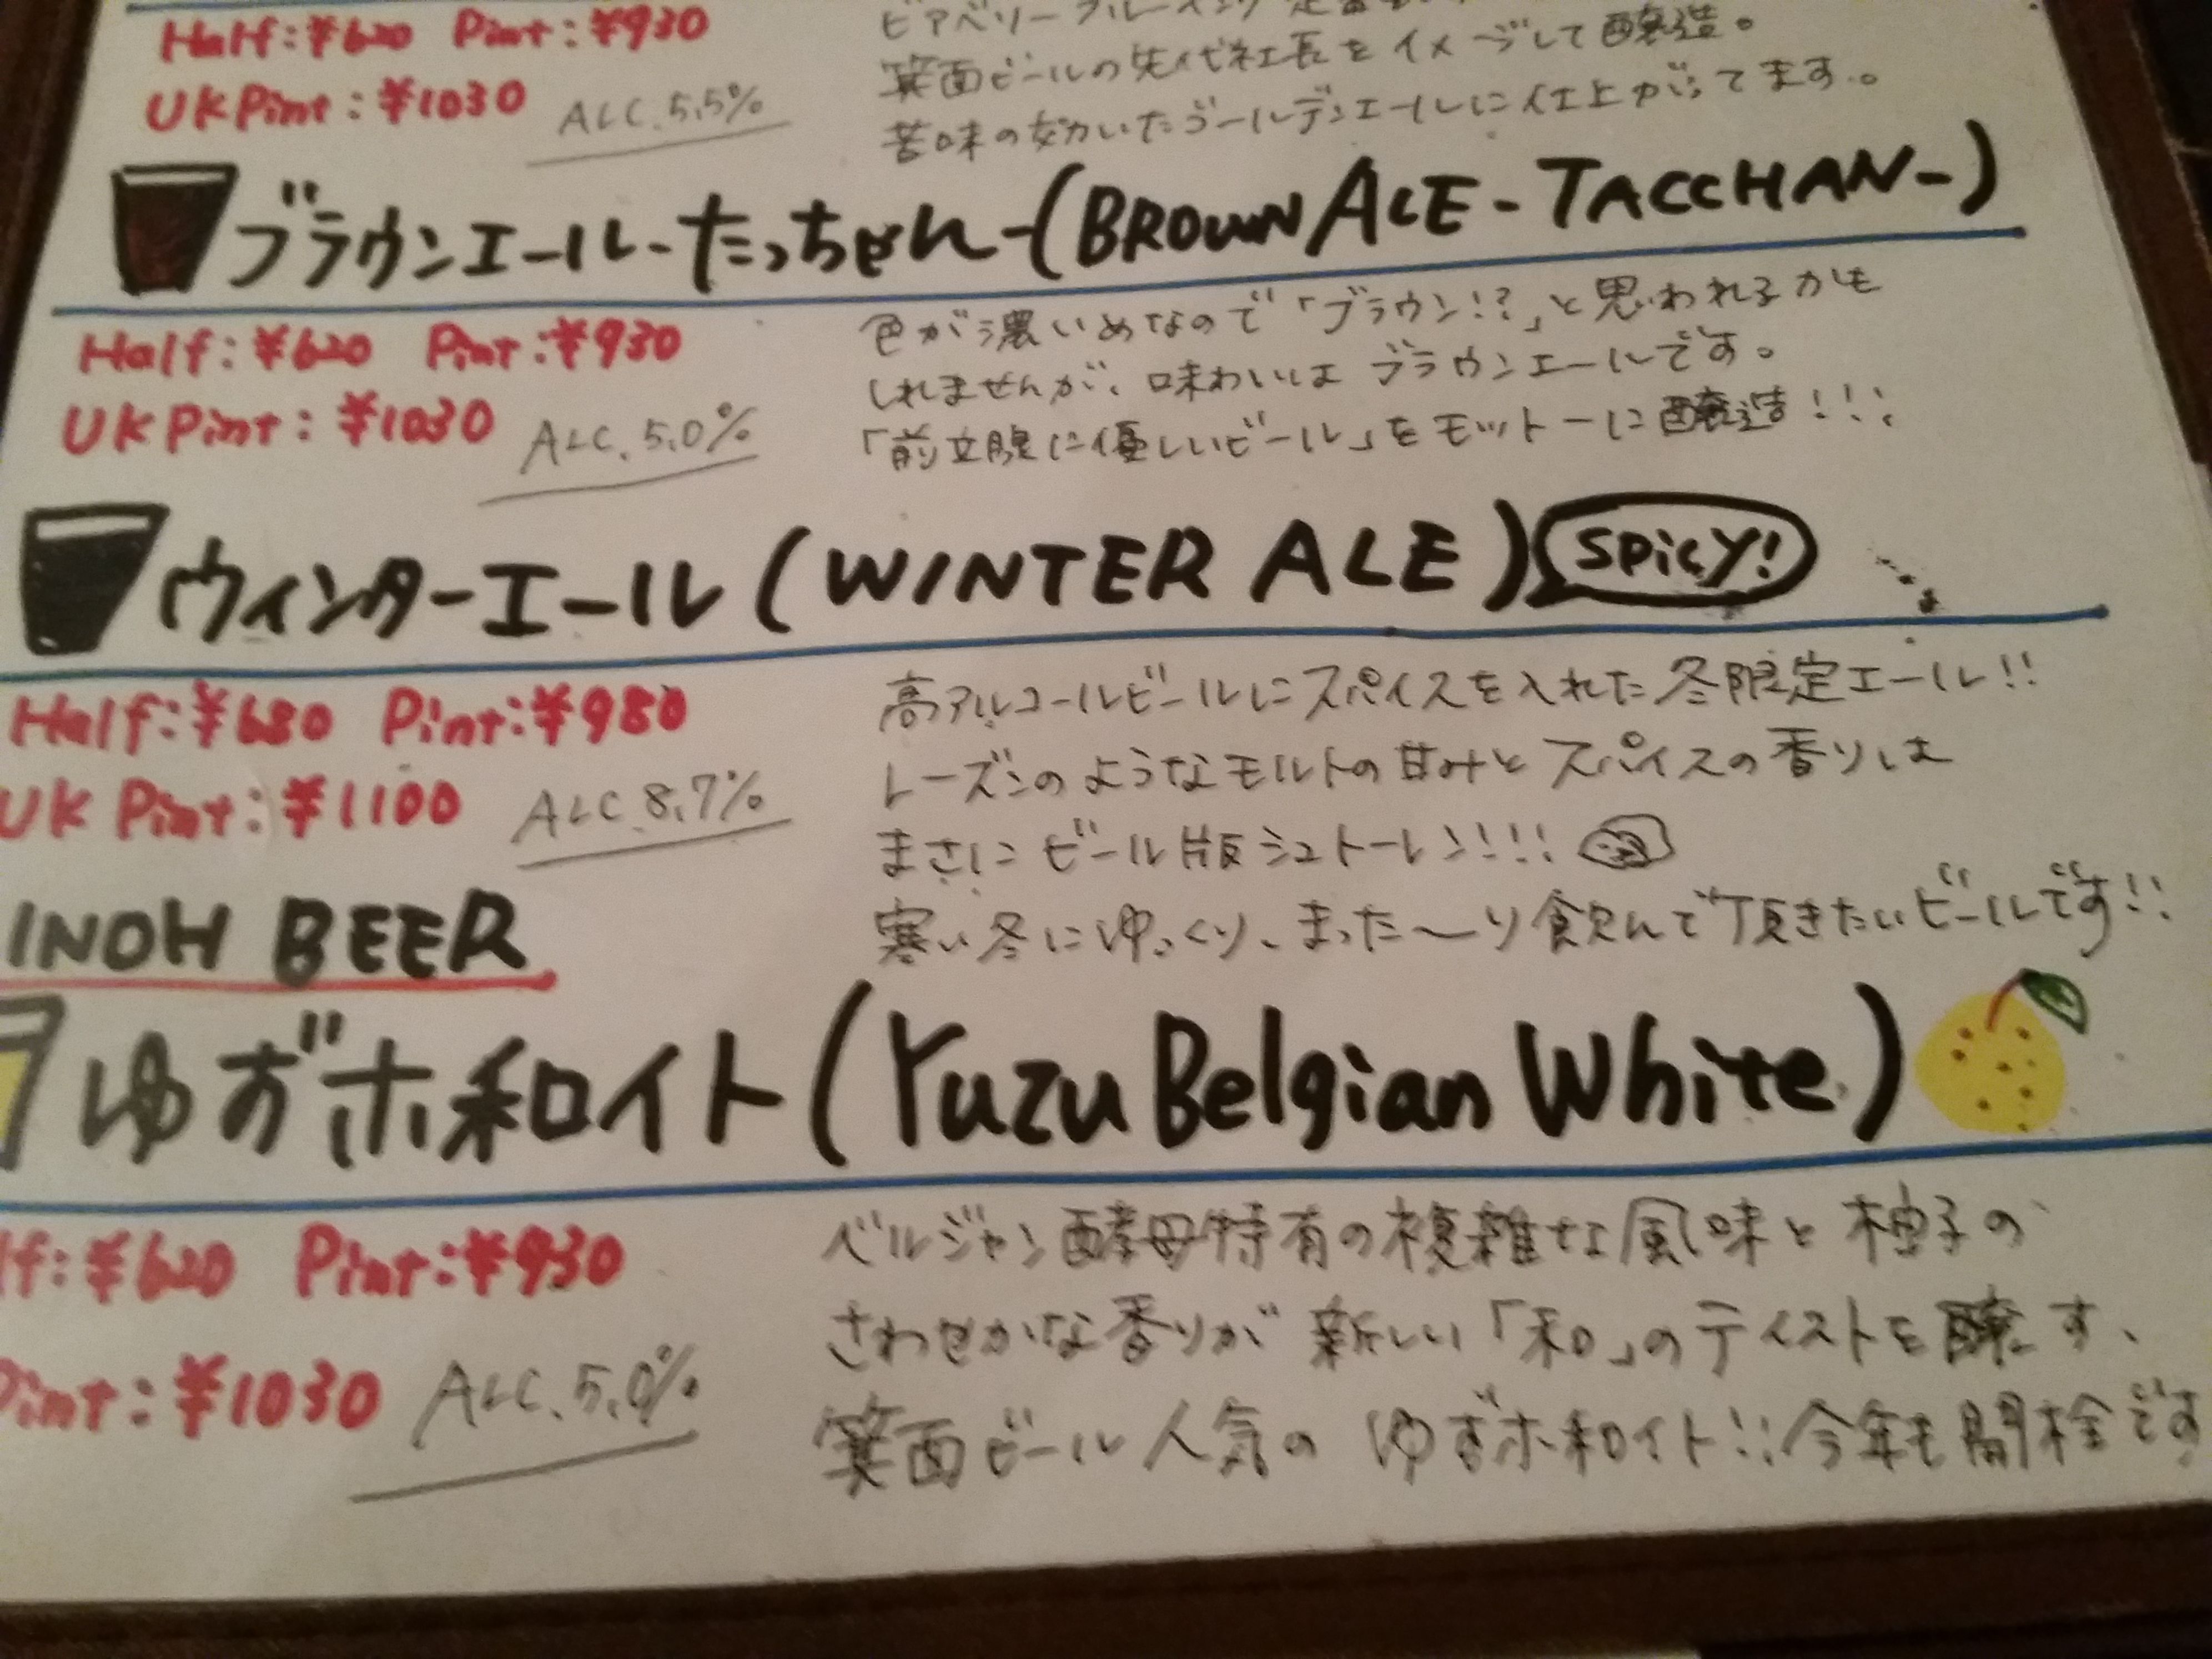 Half:¥620 Pint:¥930
UK Pint:¥1030 ALC.5.5%
ビアベリーブルーイング
箕面ビールの先代社長をイメージして醸造。
苦味の効いたゴールデンエールに仕上がってます。
ブラウンエール-たっちゃん-(BROWN ALE-TACCHAN-)
Half:¥620 Pint:¥930
UK Pint:¥1030 ALC.5.0%
色が濃いめなので「ブラウン!?」と思われるかも
しれませんが、味わいはブラウンエールです。
「前立腺に優しいビール」をモットーに醸造!!!
ウィンターエール(WINTER ALE) SPICY!
Half:¥680 Pint:¥980
UK Pint:¥1100 ALC 8.7%
高アルコールビールにスパイスを入れた冬限定エール!!
レーズンのようなモルトの甘みとスパイスの香りは
まさにビール版シュトーレン!!!
寒い冬にゆっくり、まった〜り飲んで頂きたいビールです!!
INOH BEER
ゆずホ和イト(Yuzu Belgian White)
lf:¥620 Pint:¥930
Pint:¥1030 ALC.5.0%
ベルジャン酵母特有の複雑な風味と柚子の
さわやかな香りが新しい「和」のテイストを醸す、
箕面ビール人気のゆずホ和イト!!今年も開栓です